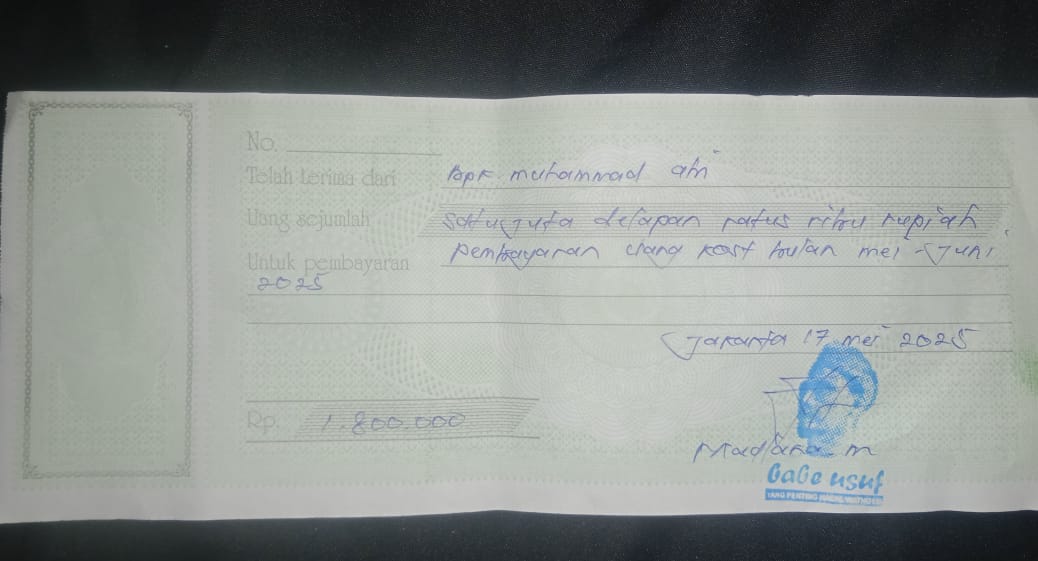 No.
Telah terima dari Bpk muhammad
Uang sejumlah satu juta delapan ratus ribu rupiah
Untuk pembayaran pembayaran uang kost bulan mei - Juni
2025
Jakarta 17 mei 2025
Rp. 1.800.000
babe usuf
YANG PENTING